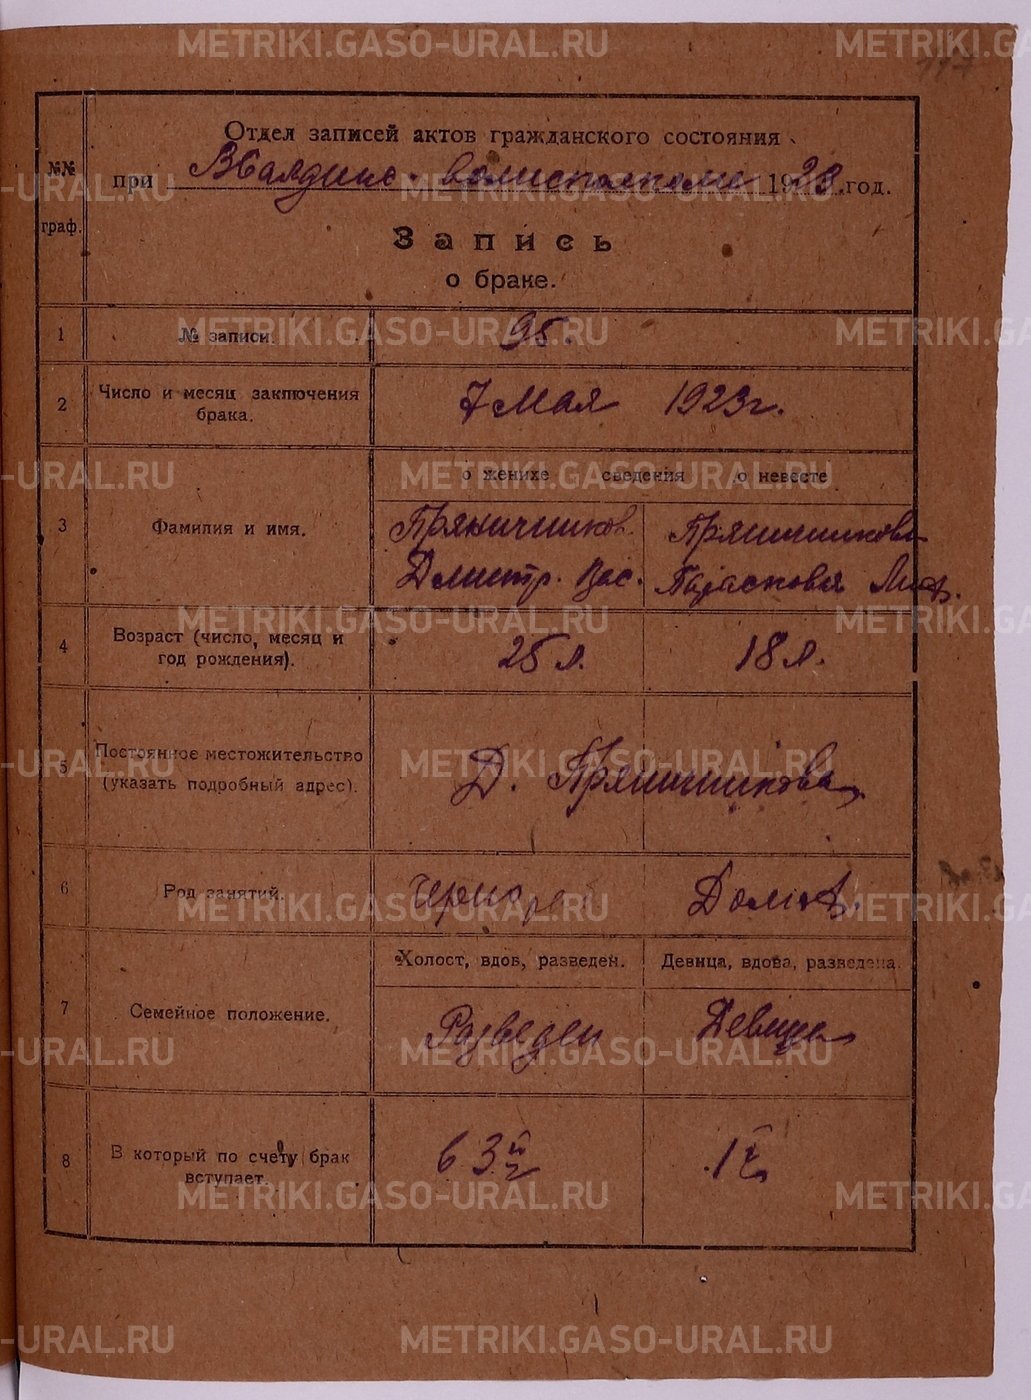 117
Отдел записей актов гражданского состояния
при волисполкоме 1923 год.
№№ граф.
Запись
о браке.
1 № записи. 95.
2 Число и месяц заключения брака. 7 Мая 1923 г.
о женихе сведения о невесте
3 Фамилия и имя. Пряничников Пряничникова
Дмитр. Вас. Парасковья
4 Возраст (число, месяц и год рождения). 25 л. 18 л.
5 Постоянное местожительство (указать подробный адрес). Д. Пряничникова
6 Род занятий.
Холост, вдов, разведен. Девица, вдова, разведена.
7 Семейное положение. Разведен Девица
8 В который по счету брак вступает. в 3й 1й
METRIKI.GASO-URAL.RU